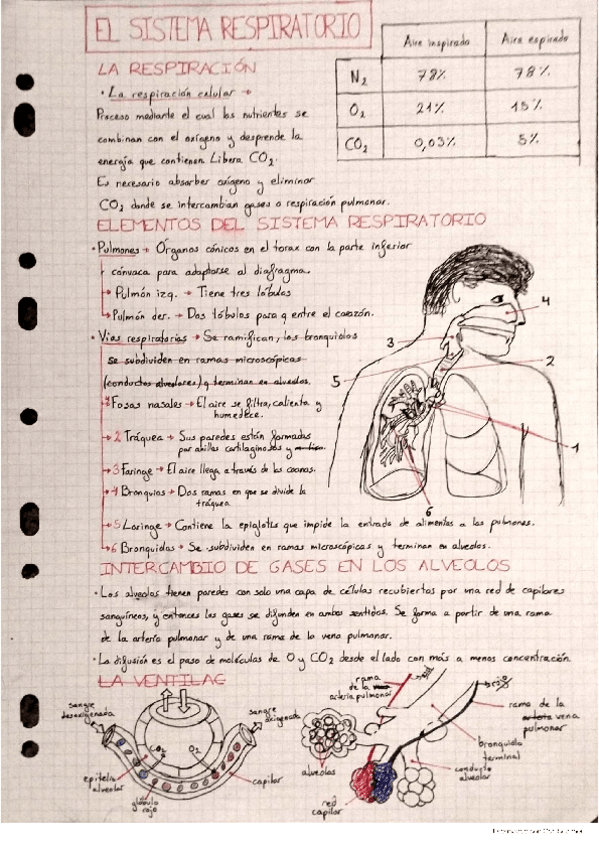 EL SISTEMA RESPIRATORIO
Aire inspirado Aire espirado
N2 78% 78%
O2 21% 15%
CO2 0,03% 5%
LA RESPIRACIÓN
· La respiración celular →
Proceso mediante el cual los nutrientes se
combinan con el oxígeno y desprende la
energía que contienen. Libera CO2.
Es necesario absorber oxígeno y eliminar
CO2 donde se intercambian gases o respiración pulmonar.
ELEMENTOS DEL SISTEMA RESPIRATORIO
· Pulmones → Órganos cónicos en el torax con la parte inferior
cóncava para adaptarse al diafragma.
→ Pulmón izq. → Tiene tres lóbulos
→ Pulmón der. → Dos lóbulos para q entre el corazón.
· Vías respiratorias → Se ramifican, los bronquiolos
se subdividen en ramas microscópicas
(conductos alveolares) q terminan en alveolos.
Fosas nasales → El aire se filtra, calienta y
humedece.
→ 2 Tráquea → Sus paredes están formadas
por anillos cartilaginosos y
→ 3 Faringe → El aire llega a través de las coanas.
→ 4 Bronquios → Dos ramas en que se divide la
tráquea
→ 5 Laringe → Contiene la epiglotis que impide la entrada de alimentos a los pulmones.
→ 6 Bronquiolos → Se subdividen en ramas microscópicas y terminan en alveolos.
4
3
2
5
1
6
INTERCAMBIO DE GASES EN LOS ALVEOLOS
· Los alveolos tienen paredes con solo una capa de células recubiertos por una red de capilares
sanguíneos, y entonces los gases se difunden en ambos sentidos. Se forma a partir de una rama
de la arteria pulmonar y de una rama de la vena pulmonar.
· La difusión es el paso de moléculas de O y CO2 desde el lado con más a menos concentración.
LA VENTILAC
sangre
desoxigenada
sangre
oxigenada
CO2 O2
epitelio
alveolar
glóbulo
rojo
capilar
rama
de la
arteria pulmonar
rama de la
arteria vena
pulmonar
bronquiolo
terminal
conducto
alveolar
alveolos
red
capilar